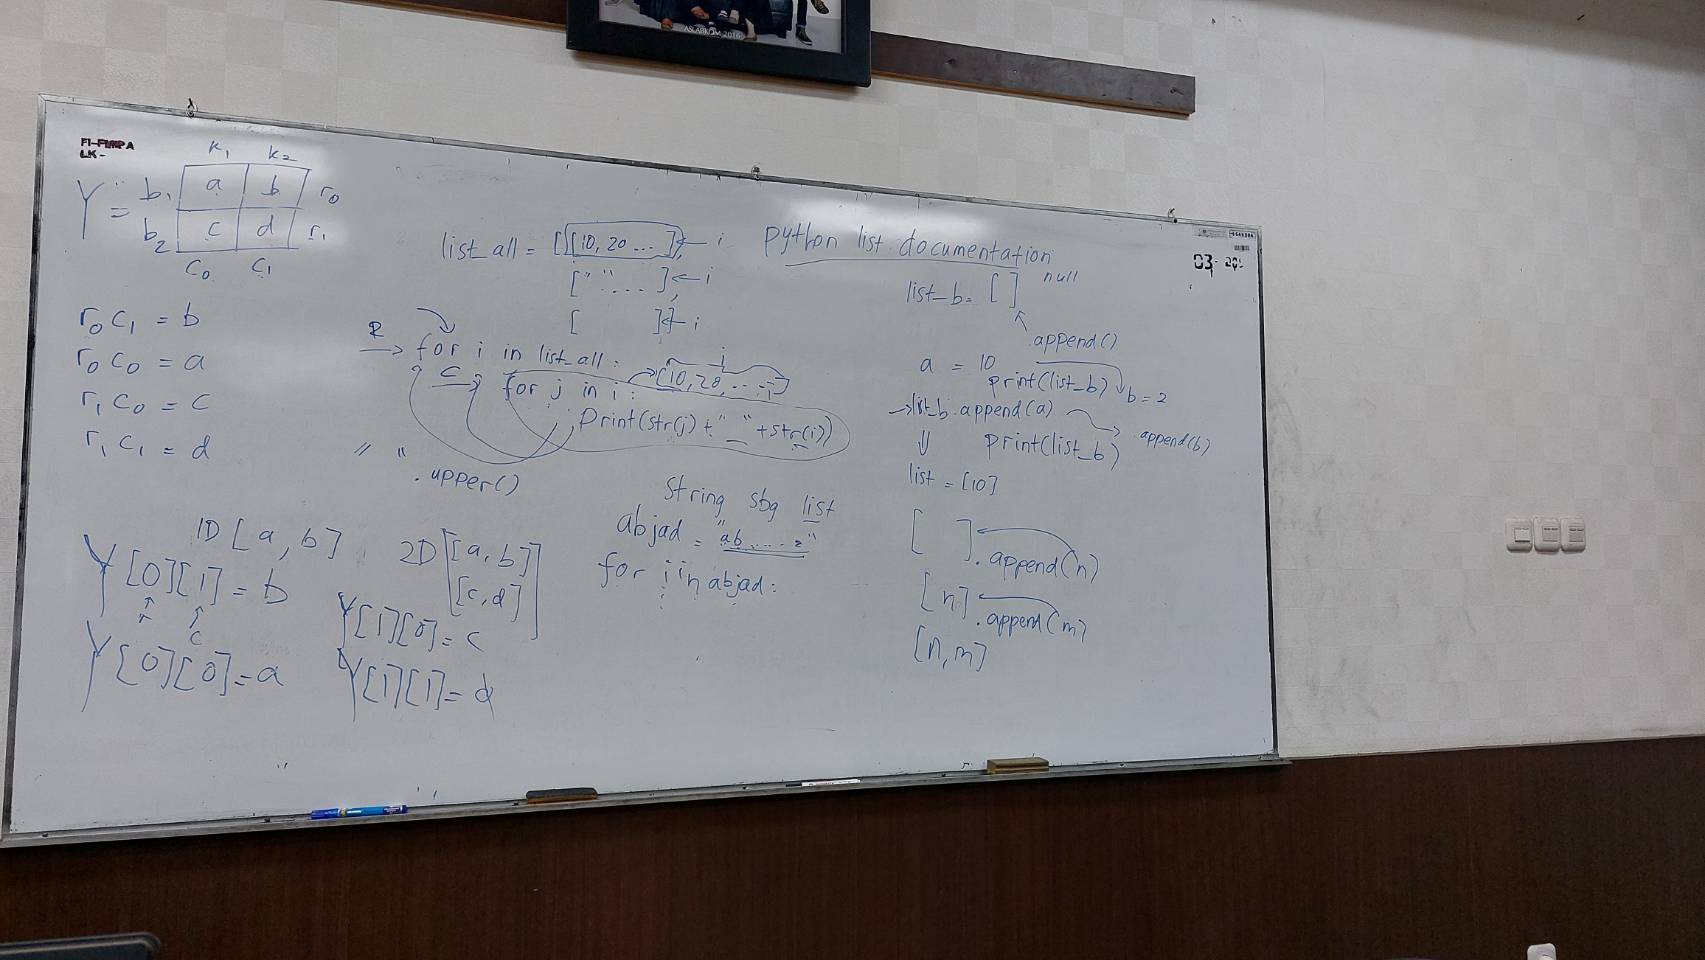 ASLABKOM 2016
FI-FMIPA
LK-
K1 K2
Y = b1 a b r0
b2 c d r1
C0 C1
r0 C1 = b
r0 C0 = a
r1 C0 = c
r1 C1 = d
1D [a, b]
Y[0][1] = b
r c
Y[0][0] = a
2D [[a, b]
[c, d]]
Y[1][0] = c
Y[1][1] = d
list_all = [[10, 20 ... ], ← i
[" " ... ], ← i
[ ]] ← i
R → for i in list_all :
i
[10, 20, ... , ]
C → for j in i :
print(str(j) + "_" + str(i))
" "
.upper()
String sbg list
abjad = "ab .... z"
for i in abjad :
python list documentation
list_b = [ ] null
.append()
a = 10
print(list_b) b = 2
→ list_b.append(a)
.append(b)
print(list_b)
list = [10]
[ ].append(n)
[n].append(m)
[n, m]
03